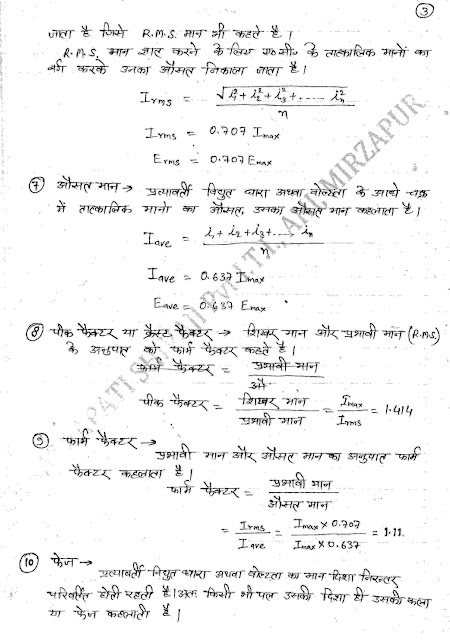 3
जाता है जिसे R.M.S. मान भी कहते है।
R.M.S. मान ज्ञात करने के लिए ए०सी० के तात्कालिक मानों का
वर्ग करके उनका औसत निकाला जाता है।
Irms = √i₁²+i₂²+i₃²+..... iₙ² / n
Irms = 0.707 Imax
Erms = 0.707 Emax
7 औसत मान → प्रत्यावर्ती विद्युत धारा अथवा वोल्टता के आधे चक्र
में तात्कालिक मानो का औसत, उसका औसत मान कहलाता है।
Iave = i₁+i₂+i₃+..... iₙ / n
Iave = 0.637 Imax
Eave = 0.637 Emax
8 पीक फैक्टर या क्रैस्ट फैक्टर → शिखर मान और प्रभावी मान (R.M.S.)
के अनुपात को फार्म फैक्टर कहते है।
फार्म फैक्टर = प्रभावी मान / औ
पीक फैक्टर = शिखर मान / प्रभावी मान = Imax / Irms = 1.414
9 फार्म फैक्टर →
प्रभावी मान और औसत मान का अनुपात फार्म
फैक्टर कहलाता है।
फार्म फैक्टर = प्रभावी मान / औसत मान
= Irms / Iave = Imax × 0.707 / Imax × 0.637 = 1.11.
10 फेज →
प्रत्यावर्ती विद्युत धारा अथवा वोल्टता का मान दिशा निरन्तर
परिवर्तित होती रहती है। अतः किसी भी पल उसकी दिशा ही उसकी कला
या फेज कहलाती है।